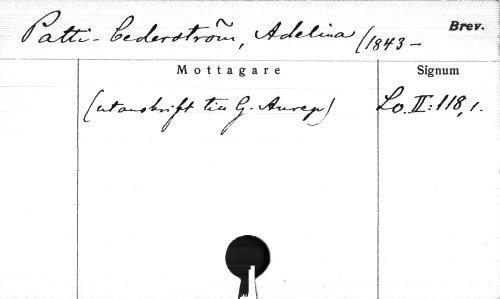 Patti-Cederström, Adelina (1843- Brev.
Mottagare Signum
(utanskrift till G. Aurep) Lo. II:118,1.